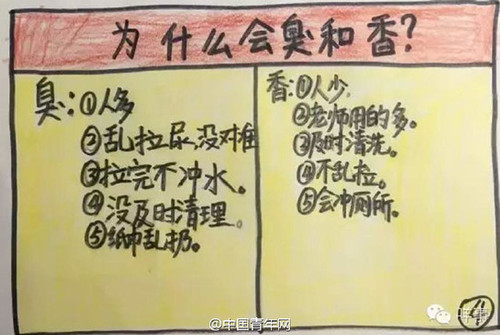 为什么会臭和香?
臭:①人多
②乱拉尿、没对准
③拉完不冲水。
④没及时清理。
⑤纸巾乱扔。
香:①人少
②老师用的多。
③及时清洗。
④不乱拉。
⑤会冲厕所。
④
@中国青年网